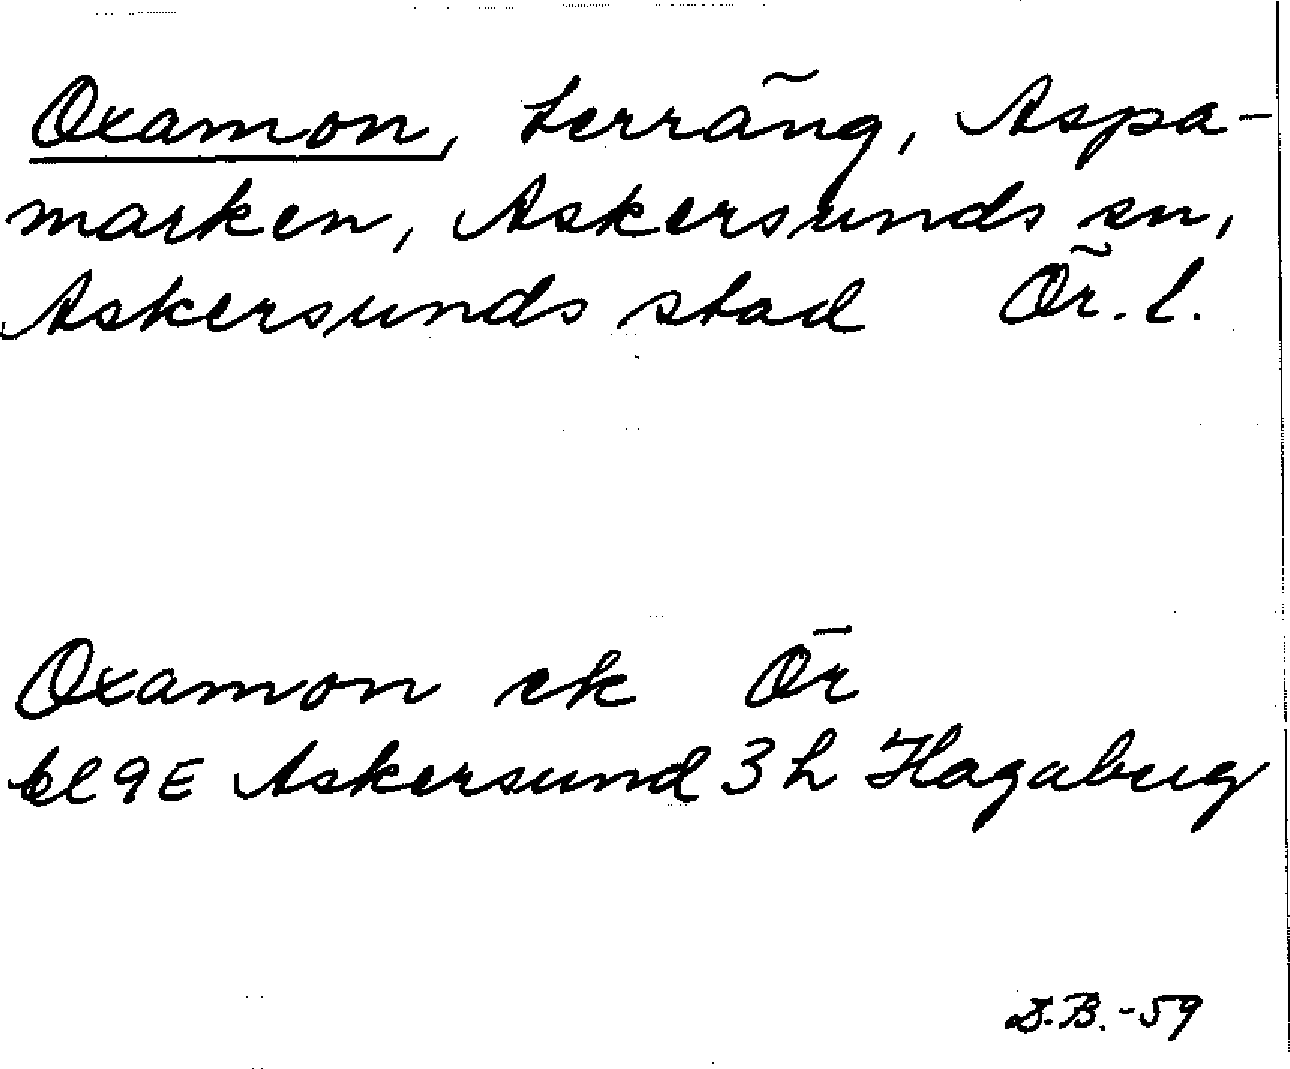 Oxamon, terräng, Aspa-
marken, Askersunds sn,
Askersunds stad Ör. l.
Oxamon ek Ör
bl 9E Askersund 3 h Hagaberg
D.B.-59